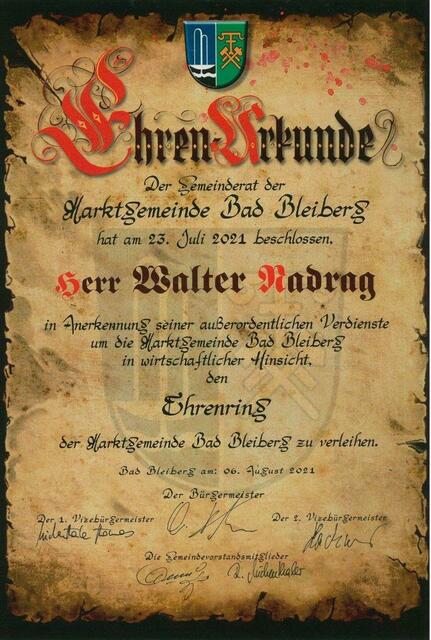 Ehren-Urkunde
Der Gemeinderat der
Marktgemeinde Bad Bleiberg
hat am 23. Juli 2021 beschlossen,
Herr Walter Nadrag
in Anerkennung seiner außerordentlichen Verdienste
um die Marktgemeinde Bad Bleiberg
in wirtschaftlicher Hinsicht,
den
Ehrenring
der Marktgemeinde Bad Bleiberg zu verleihen.
Bad Bleiberg am: 06. August 2021
Der Bürgermeister
Der 1. Vizebürgermeister
Der 2. Vizebürgermeister
Die Gemeindevorstandsmitglieder